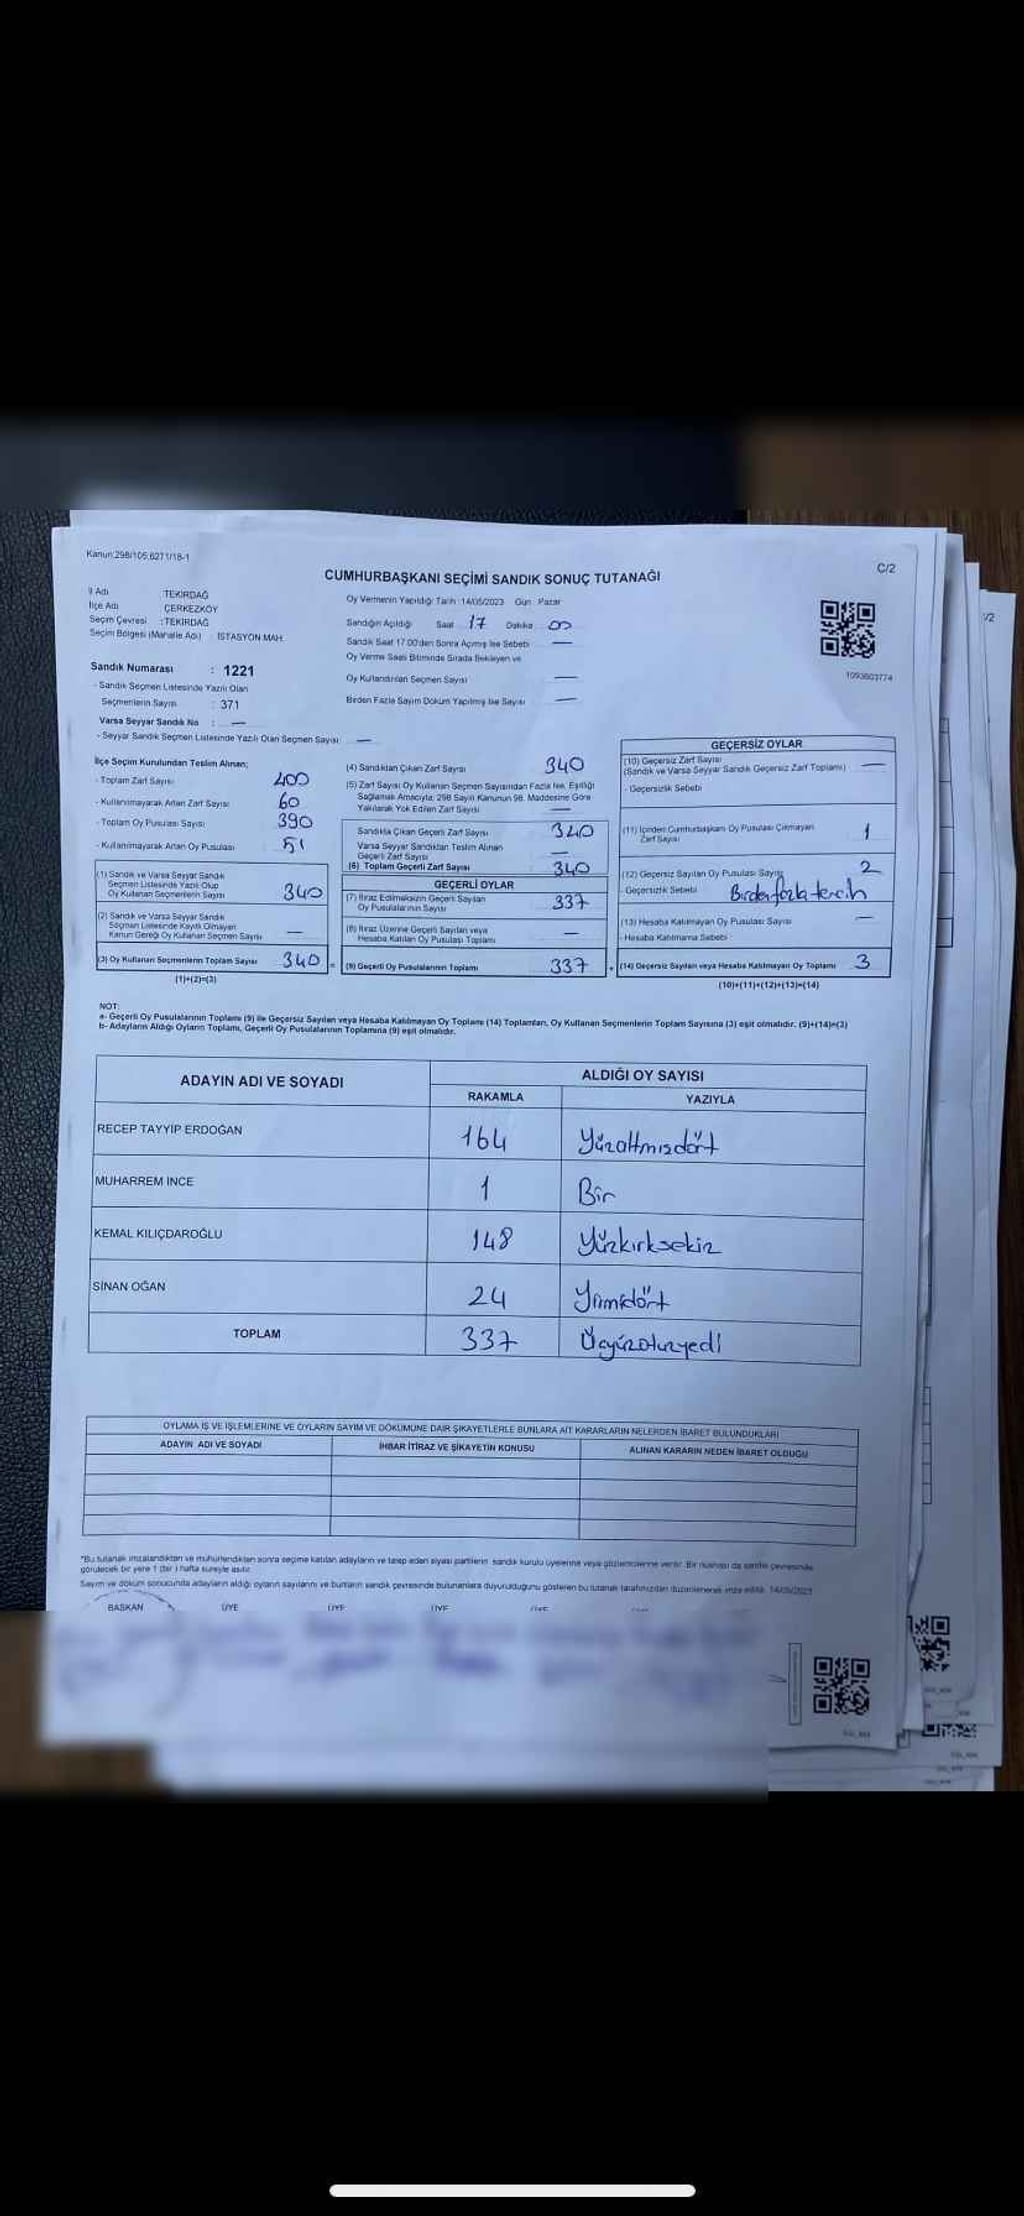 Kanun:298/105,6271/18-1
C/2
CUMHURBAŞKANI SEÇİMİ SANDIK SONUÇ TUTANAĞI
İl Adı : TEKİRDAĞ
İlçe Adı : ÇERKEZKÖY
Seçim Çevresi : TEKİRDAĞ
Seçim Bölgesi (Mahalle Adı) : İSTASYON MAH.
Oy Vermenin Yapıldığı Tarih :14/05/2023 Gün : Pazar
Sandığın Açıldığı Saat 17 Dakika 00
Sandık Saat 17.00'den Sonra Açımış İse Sebebi —
Oy Verme Saati Bitiminde Sırada Bekleyen ve
Oy Kullandırılan Seçmen Sayısı —
Birden Fazla Sayım Döküm Yapılmış İse Sayısı —
1093603774
Sandık Numarası : 1221
- Sandık Seçmen Listesinde Yazılı Olan
Seçmenlerin Sayısı : 371
Varsa Seyyar Sandık No : —
- Seyyar Sandık Seçmen Listesinde Yazılı Olan Seçmen Sayısı —
İlçe Seçim Kurulundan Teslim Alınan;
- Toplam Zarf Sayısı 400
- Kullanılmayarak Artan Zarf Sayısı 60
- Toplam Oy Pusulası Sayısı 390
- Kullanılmayarak Artan Oy Pusulası 51
(1) Sandık ve Varsa Seyyar Sandık
Seçmen Listesinde Yazılı Olup
Oy Kullanan Seçmenlerin Sayısı 340
(2) Sandık ve Varsa Seyyar Sandık
Seçmen Listesinde Kayıtlı Olmayan
Kanun Gereği Oy Kullanan Seçmen Sayısı —
(3) Oy Kullanan Seçmenlerin Toplam Sayısı 340
(1)+(2)=(3)
(4) Sandıktan Çıkan Zarf Sayısı 340
(5) Zarf Sayısı Oy Kullanan Seçmen Sayısından Fazla İse, Eşitliği
Sağlamak Amacıyla, 298 Sayılı Kanunun 98. Maddesine Göre
Yakılarak Yok Edilen Zarf Sayısı —
Sandıkta Çıkan Geçerli Zarf Sayısı 340
Varsa Seyyar Sandıktan Teslim Alınan
Geçerli Zarf Sayısı —
(6) Toplam Geçerli Zarf Sayısı 340
GEÇERLİ OYLAR
(7) İtiraz Edilmeksizin Geçerli Sayılan
Oy Pusulalarının Sayısı 337
(8) İtiraz Üzerine Geçerli Sayılan veya
Hesaba Katılan Oy Pusulası Toplamı —
(9) Geçerli Oy Pusulalarının Toplamı 337
GEÇERSİZ OYLAR
(10) Geçersiz Zarf Sayısı
(Sandık ve Varsa Seyyar Sandık Geçersiz Zarf Toplamı) —
- Geçersizlik Sebebi
(11) İçinden Cumhurbaşkanı Oy Pusulası Çıkmayan
Zarf Sayısı 1
(12) Geçersiz Sayılan Oy Pusulası Sayısı 2
- Geçersizlik Sebebi Birden fazla tercih
(13) Hesaba Katılmayan Oy Pusulası Sayısı —
- Hesaba Katılmama Sebebi
(14) Geçersiz Sayılan veya Hesaba Katılmayan Oy Toplamı 3
(10)+(11)+(12)+(13)=(14)
NOT:
a- Geçerli Oy Pusulalarının Toplamı (9) ile Geçersiz Sayılan veya Hesaba Katılmayan Oy Toplamı (14) Toplamları, Oy Kullanan Seçmenlerin Toplam Sayısına (3) eşit olmalıdır. (9)+(14)=(3)
b- Adayların Aldığı Oyların Toplamı, Geçerli Oy Pusulalarının Toplamına (9) eşit olmalıdır.
ADAYIN ADI VE SOYADI ALDIĞI OY SAYISI
RAKAMLA YAZIYLA
RECEP TAYYİP ERDOĞAN 164 Yüzaltmışdört
MUHARREM İNCE 1 Bir
KEMAL KILIÇDAROĞLU 148 Yüzkırksekiz
SİNAN OĞAN 24 Yirmidört
TOPLAM 337 Üçyüzotuzyedi
OYLAMA İŞ VE İŞLEMLERİNE VE OYLARIN SAYIM VE DÖKÜMÜNE DAİR ŞİKAYETLERLE BUNLARA AİT KARARLARIN NELERDEN İBARET BULUNDUKLARI
ADAYIN ADI VE SOYADI İHBAR İTİRAZ VE ŞİKAYETİN KONUSU ALINAN KARARIN NEDEN İBARET OLDUĞU
*Bu tutanak imzalandıktan ve mühürlendikten sonra seçime katılan adayların ve talep eden siyasi partilerin sandık kurulu üyelerine veya gözlemcilerine verilir. Bir nüshası da sandık çevresinde
görülecek bir yere 1 (bir ) hafta süreyle asılır.
Sayım ve döküm sonucunda adayların aldığı oyların sayılarını ve bunların sandık çevresinde bulunanlara duyurulduğunu gösteren bu tutanak tarafımızdan düzenlenerek imza edildi. 14/05/2023
BAŞKAN ÜYE ÜYE ÜYE ÜYE